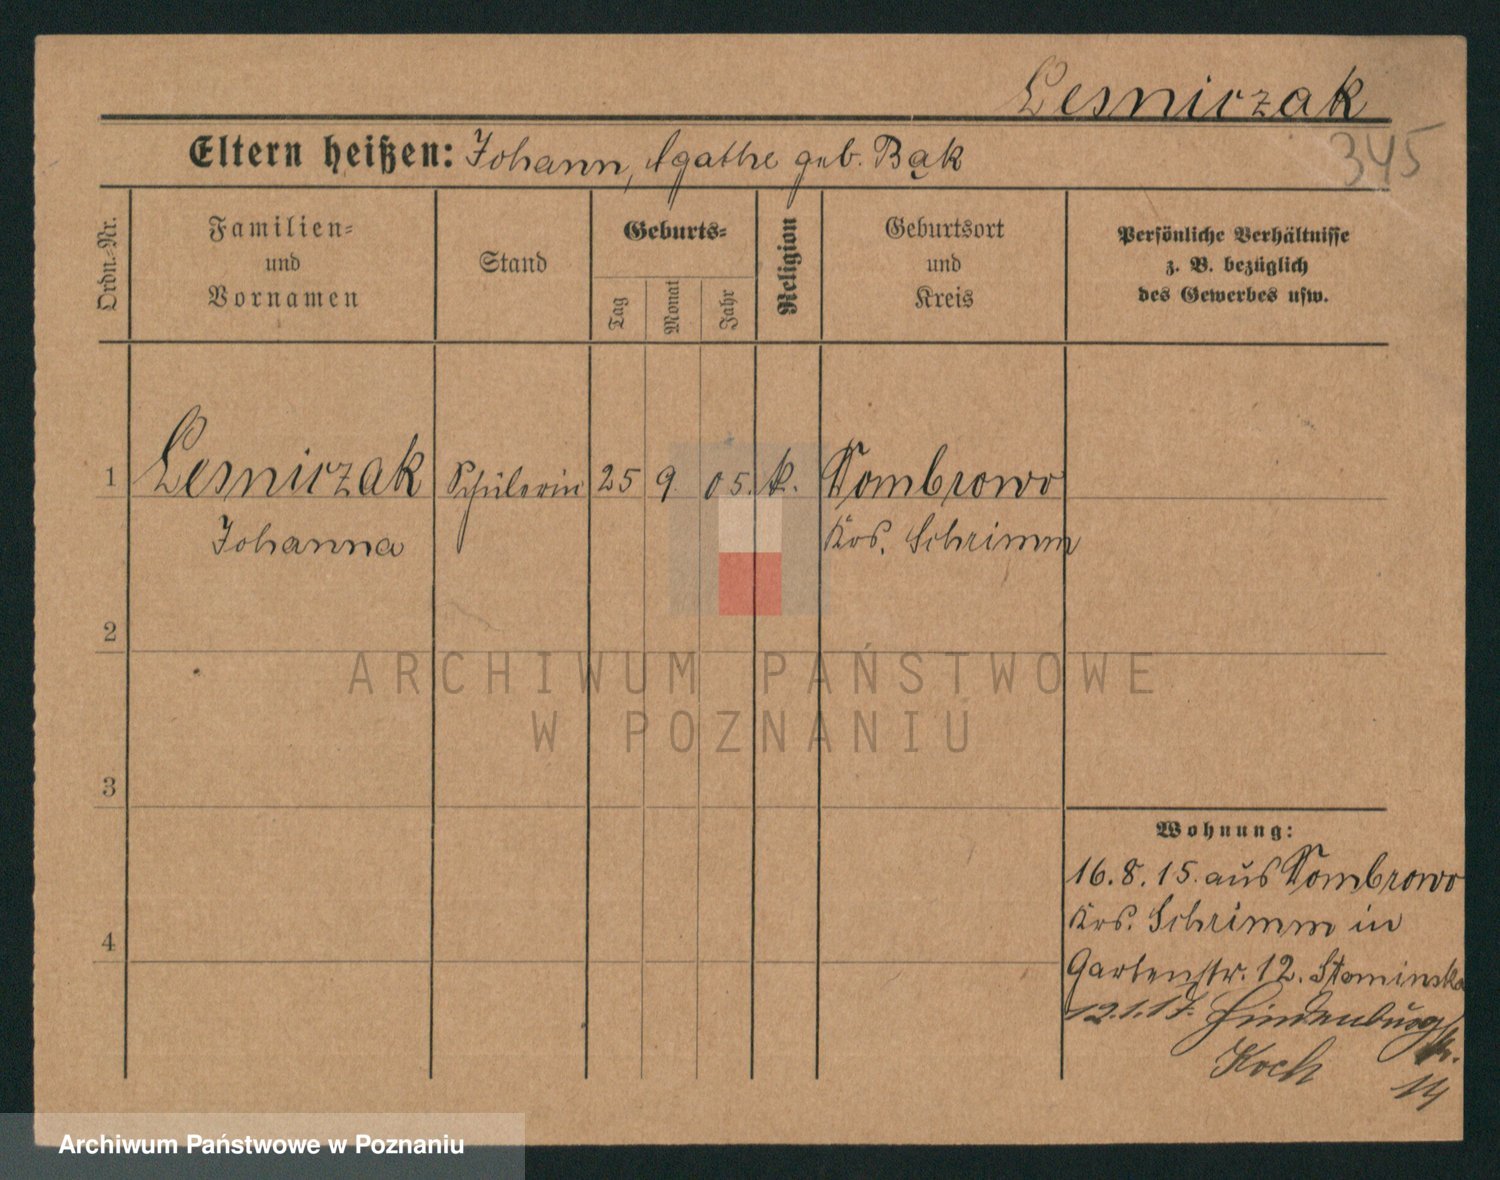 Lesniczak
345
Eltern heißen: Johann, Agathe geb. Bąk
Ordn.-Nr.
Familien-
und
Vornamen
Stand
Geburts-
Tag
Monat
Jahr
Religion
Geburtsort
und
Kreis
Persönliche Verhältnisse
z. B. bezüglich
des Gewerbes usw.
1 Lesniczak Schülerin 25 9. 05. k. Dombrowo
Johanna Krs. Schrimm
2
3
4
Wohnung:
16.8.15. aus Dombrowo
Krs. Schrimm in
Gartenstr. 12.
12.1.17. Hindenburg
Koch
14
ARCHIWUM PAŃSTWOWE
W POZNANIU
Archiwum Państwowe w Poznaniu